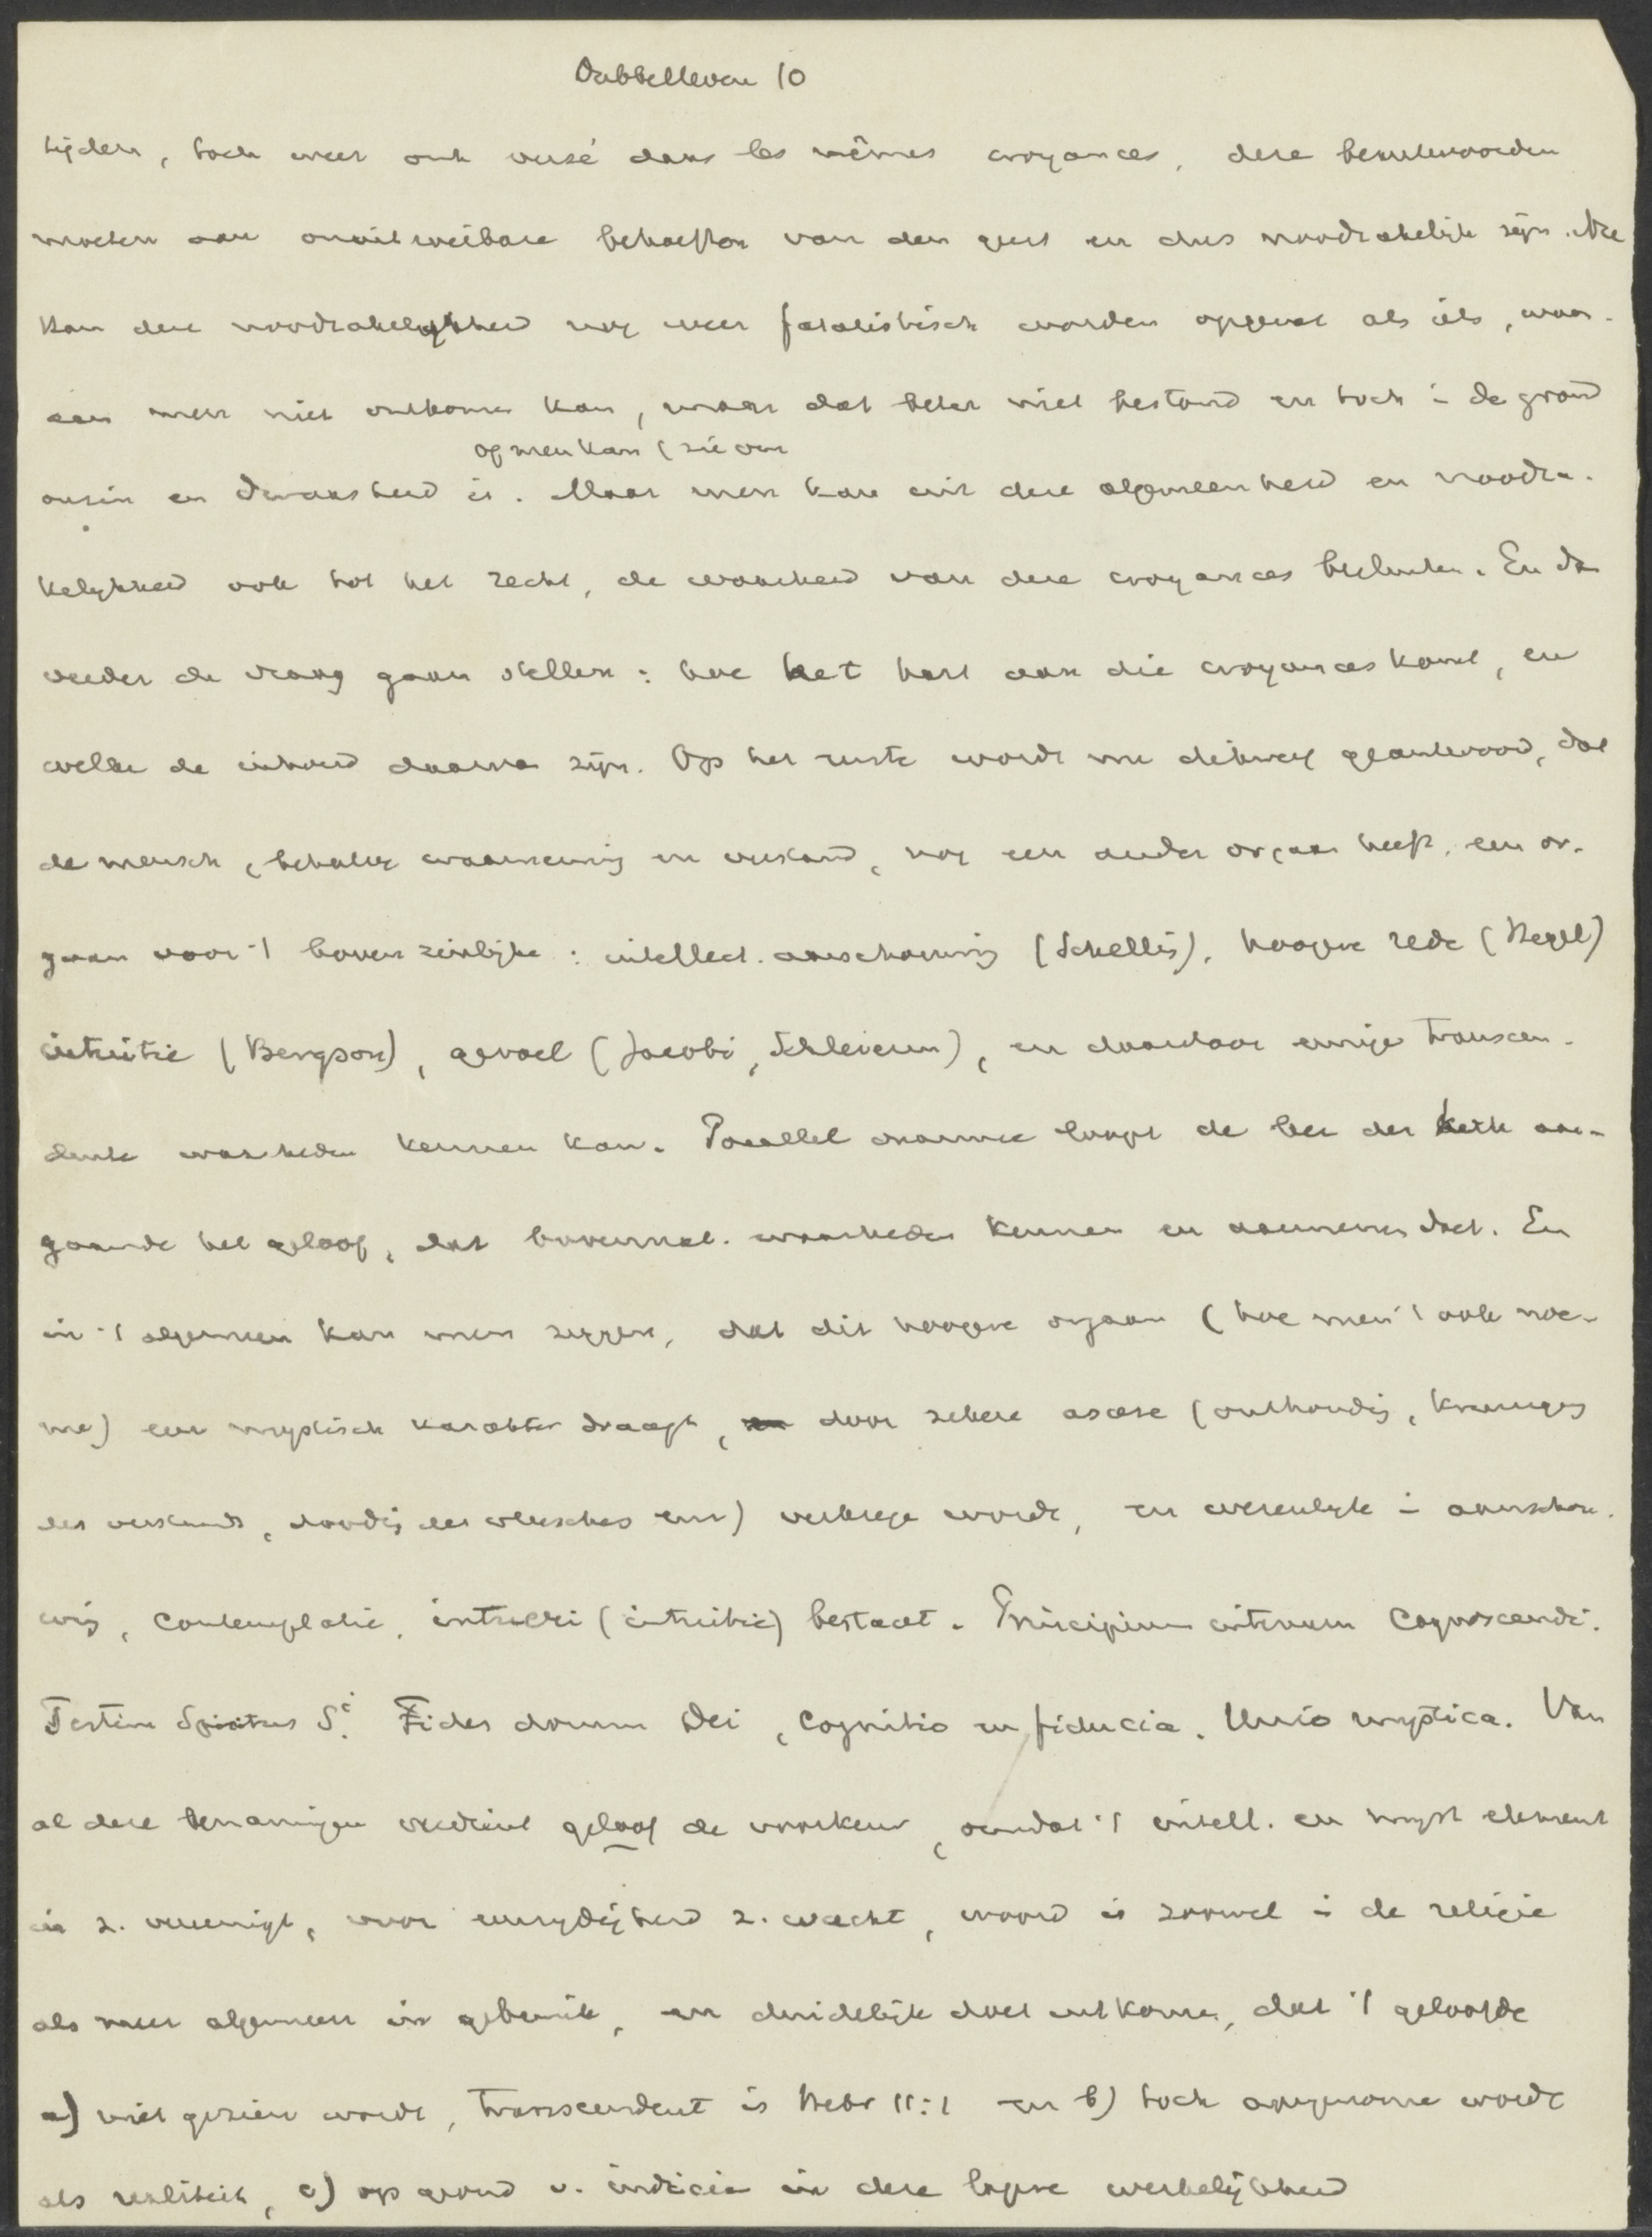 Dubbelleven 10
tijden, toch weer ont versé dans les mêmes croyances, deze beantwoorden
moeten aan onuitroeibare behoeften van den geest en dus noodzakelijk zijn. Nu
kan deze noodzakelijkheid nog weer fatalistisch worden opgevat als iets, waar-
aan men niet ontkomen kan, maar dat beter niet bestond en toch i de grond
op men kan (zie
onzin en dwaasheid is. Maar men kan uit deze algemeenheid en noodza-
kelijkheid ook tot het recht, de waarheid van deze croyances besluiten. En da
verder de vraag gaan stellen: hoe het hart aan die croyances komt, en
welke de inhoud daarva zijn. Op het eerste wordt nu dikwerf geantwoord, dat
de mensch, behalve waarneming en verstand, nog een ander orgaan heeft, een or-
gaan voor 't bovenzinlijke: intellect. aanschouwing (Schelling), hoogere rede (Hegel)
intuitie (Bergson), gevoel (Jacobi, Schleierm), en daardoor eenige transcen-
dente waarheden kennen kan. Parallel daarmee loopt de leer der kerk aan-
gaande het geloof, dat bovennat. waarheden kennen en aannemen doet. En
in 't algemeen kan men zeggen, dat dit hoogere orgaan (hoe men 't ook noe-
me) een mystisch karakter draagt, door zekere ascese (onthoudig, kruisiging
des verstands, doodig des vleesches enz) verkrege wordt, en wezenlijk i aanschou-
wig, contemplatie, intueri (intuitie) bestaat. Principium internum cognoscendi.
Testim Spiritus Sci. Fides donum Dei, cognitio en fiducia. Unio mystica. Van
al deze benamingen verdient geloof de voorkeur, omdat 't intell. en myst element
in z. vereenigt, voor eenzydigheid z. wacht, woord is zoowel i de religie
als meer algemeen in gebruik, en duidelijk doet uitkome, dat 't geloofde
a) niet gezien wordt, transcendent is Hebr 11:1 en b) toch aangenome wordt
als realiteit, c) op grond v. indicia in deze lagere werkelijkheid